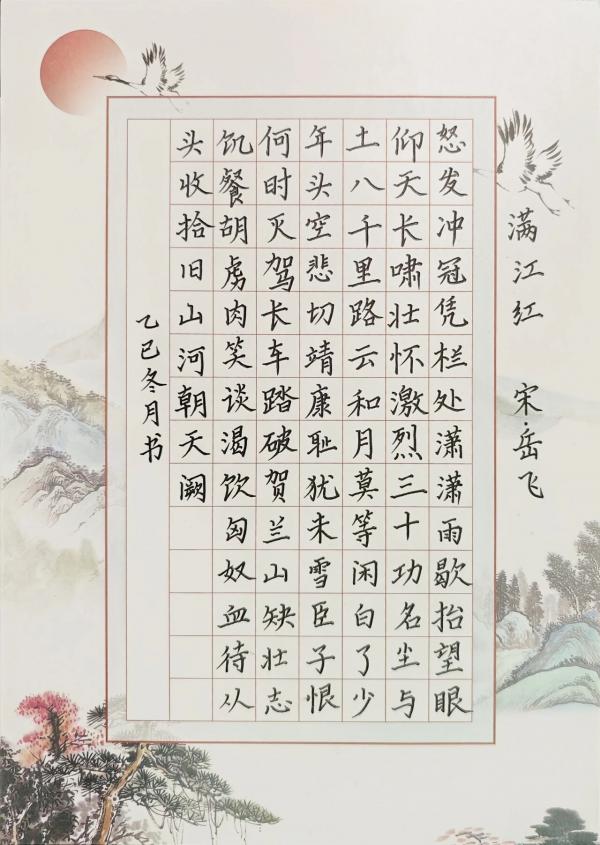 满江红 宋·岳飞
怒发冲冠凭栏处潇潇雨歇抬望眼
仰天长啸壮怀激烈三十功名尘与
土八千里路云和月莫等闲白了少
年头空悲切靖康耻犹未雪臣子恨
何时灭驾长车踏破贺兰山缺壮志
饥餐胡虏肉笑谈渴饮匈奴血待从
头收拾旧山河朝天阙
乙巳冬月书